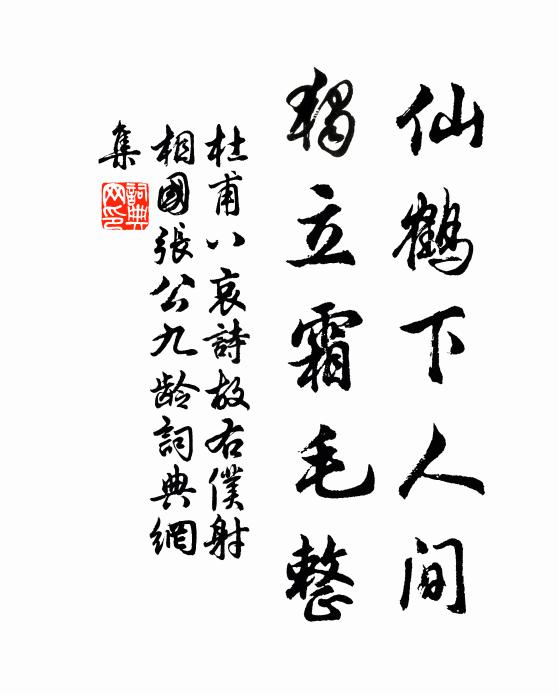 仙鹤下人间
獨立霜毛整
杜甫八哀詩故右僕射
相國張公九齡詞典網
集
詞典
网印